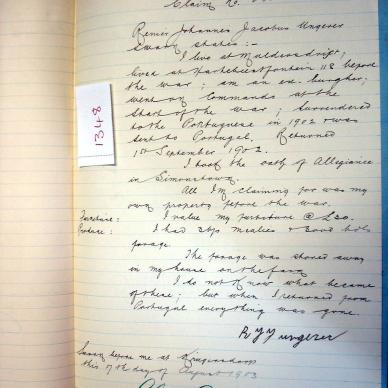 Claim No.
Renier Johannes Jacobus Ungerer
Sworn states:-
I live at Muldersdrift;
lived at Hartebeestfontein 118 before
the war; am an ex. burgher;
went on Commando at the
start of the war; surrendered
to the Portuguese in 1902 & was
sent to Portugal, Returned
1st September 1902.
I took the oath of Allegiance
in Simonstown.
All I'm claiming for was my
own property before the war.
Furniture: I value my furniture @ £30.
Produce: I had 3 bgs mealies & 3000 bdls
forage.
The forage was stored away
in my house on the farm
I do not know what became
of these; but when I returned from
Portugal everything was gone.
R J J Ungerer
Sworn before me at Krugersdorp
this 17th day of August 1903
1348